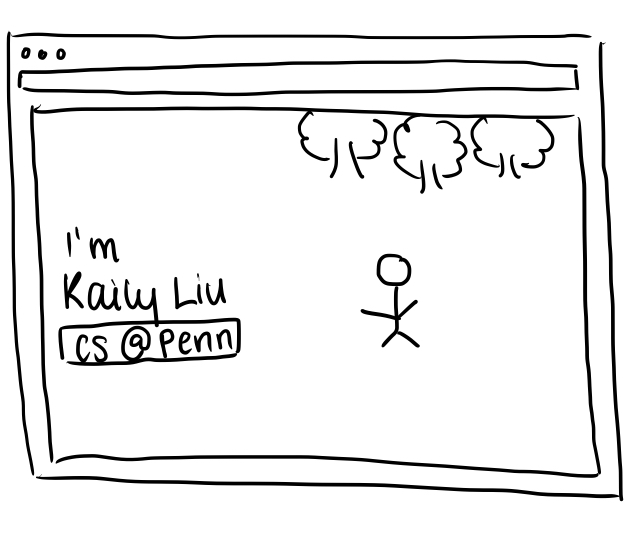 I'm
Kaily Liu
CS @ Penn